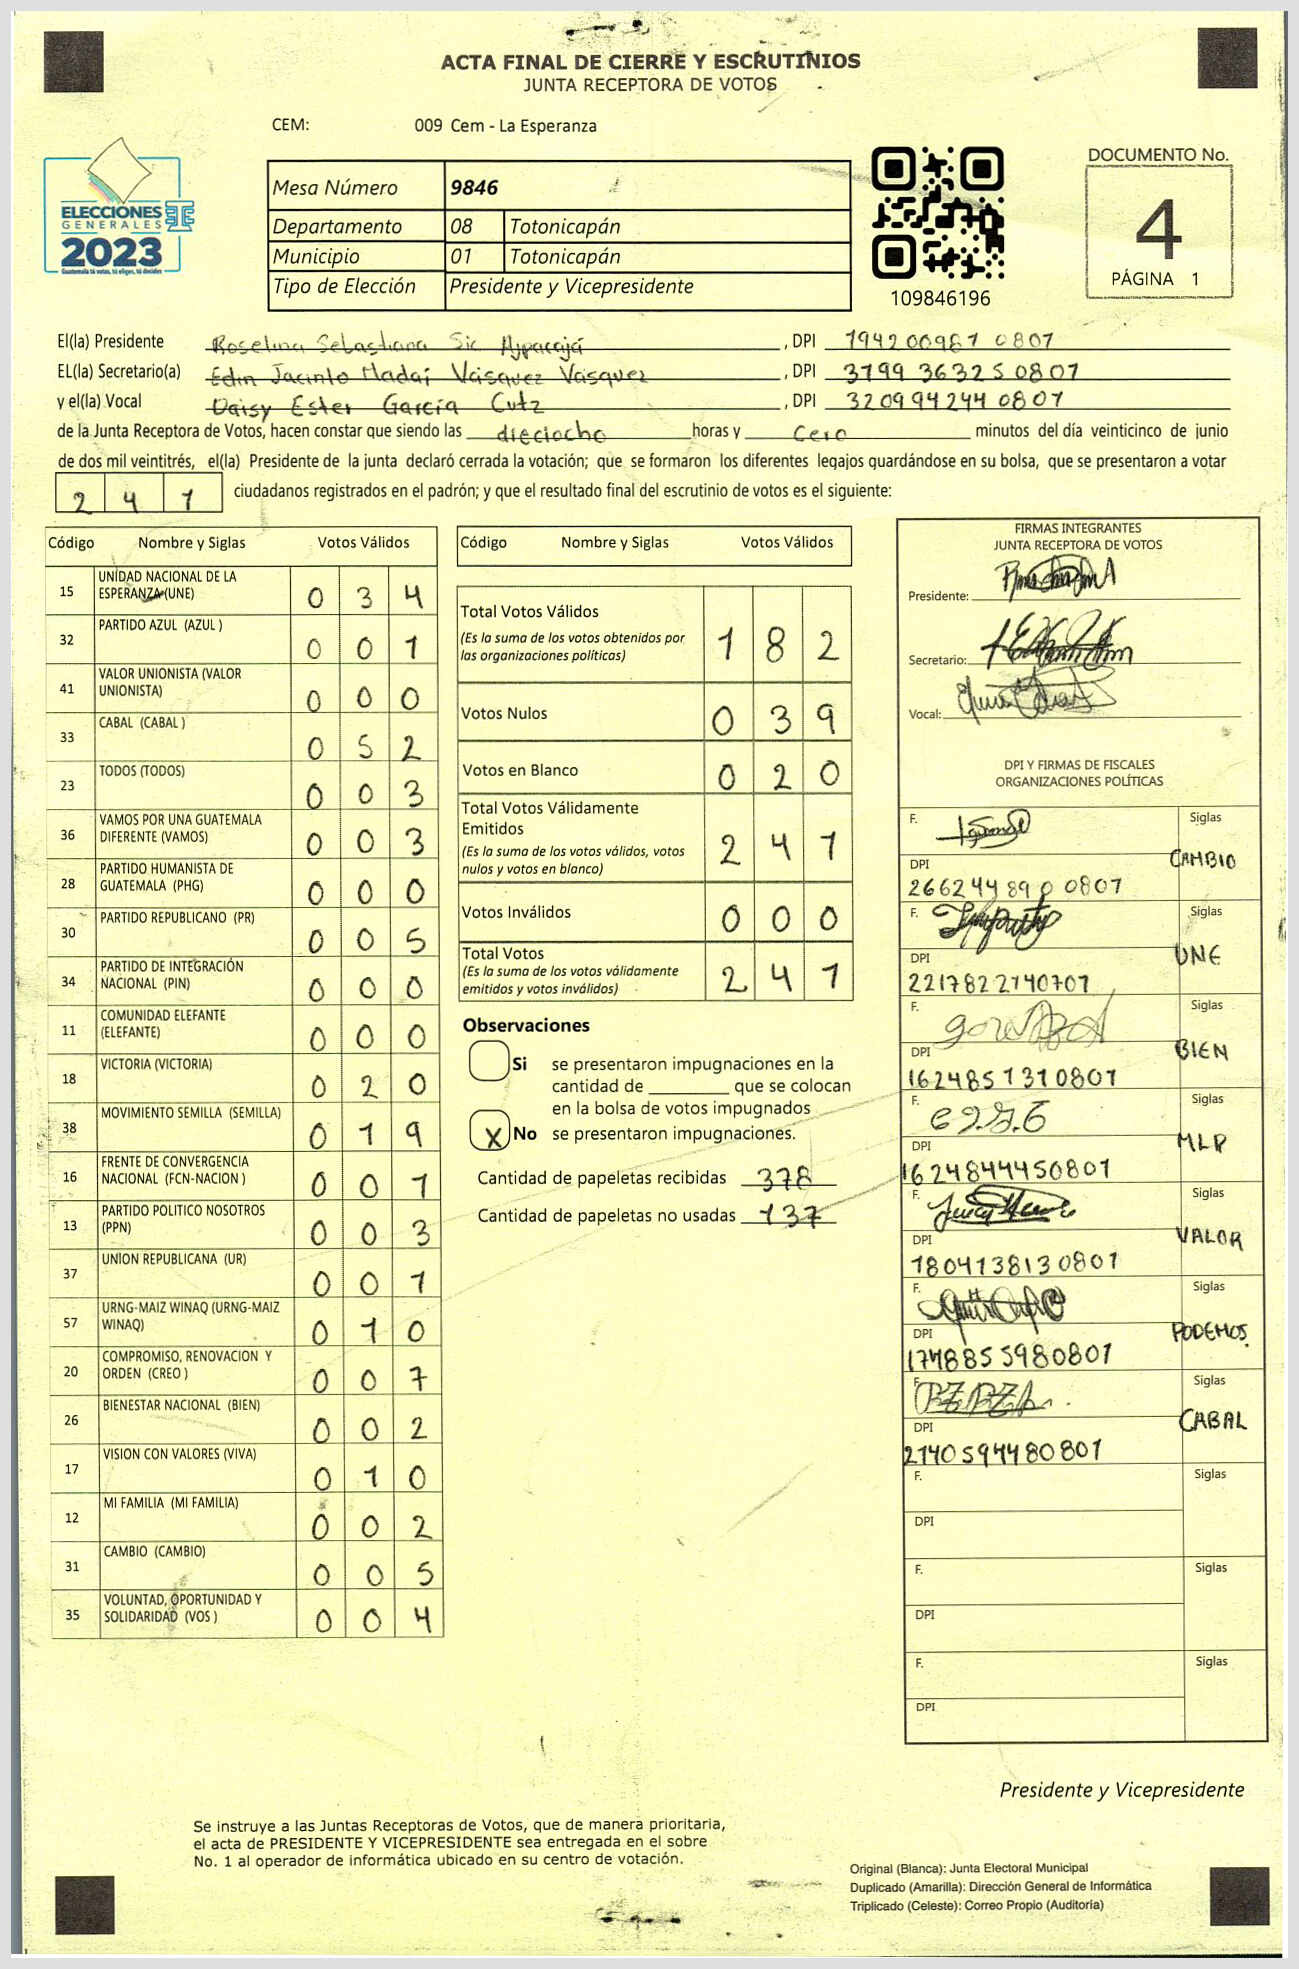 ACTA FINAL DE CIERRE Y ESCRUTINIOS
JUNTA RECEPTORA DE VOTOS
CEM: 009 Cem - La Esperanza
ELECCIONES
GENERALES
2023
Guatemala tú votas, tú eliges, tú decides
Mesa Número 9846
Departamento 08 Totonicapán
Municipio 01 Totonicapán
Tipo de Elección Presidente y Vicepresidente
109846196
DOCUMENTO No.
4
PÁGINA 1
El(la) Presidente Roselina Sebastiana Sic Ajpacajá, DPI 194200987 0807
EL(la) Secretario(a) Edin Jacinto Hadaí Vásquez Vásquez, DPI 3799 36325 0807
y el(la) Vocal Daisy Ester García Cutz, DPI 320994244 0807
de la Junta Receptora de Votos, hacen constar que siendo las dieciocho horas y Cero minutos del día veinticinco de junio
de dos mil veintitrés, el(la) Presidente de la junta declaró cerrada la votación; que se formaron los diferentes legajos guardándose en su bolsa, que se presentaron a votar
2 4 1 ciudadanos registrados en el padrón; y que el resultado final del escrutinio de votos es el siguiente:
Código Nombre y Siglas Votos Válidos
15 UNIDAD NACIONAL DE LA ESPERANZA (UNE) 0 3 4
32 PARTIDO AZUL (AZUL ) 0 0 1
41 VALOR UNIONISTA (VALOR UNIONISTA) 0 0 0
33 CABAL (CABAL ) 0 5 2
23 TODOS (TODOS) 0 0 3
36 VAMOS POR UNA GUATEMALA DIFERENTE (VAMOS) 0 0 3
28 PARTIDO HUMANISTA DE GUATEMALA (PHG) 0 0 0
30 PARTIDO REPUBLICANO (PR) 0 0 5
34 PARTIDO DE INTEGRACIÓN NACIONAL (PIN) 0 0 0
11 COMUNIDAD ELEFANTE (ELEFANTE) 0 0 0
18 VICTORIA (VICTORIA) 0 2 0
38 MOVIMIENTO SEMILLA (SEMILLA) 0 1 9
16 FRENTE DE CONVERGENCIA NACIONAL (FCN-NACION ) 0 0 1
13 PARTIDO POLITICO NOSOTROS (PPN) 0 0 3
37 UNION REPUBLICANA (UR) 0 0 1
57 URNG-MAIZ WINAQ (URNG-MAIZ WINAQ) 0 1 0
20 COMPROMISO, RENOVACION Y ORDEN (CREO ) 0 0 7
26 BIENESTAR NACIONAL (BIEN) 0 0 2
17 VISION CON VALORES (VIVA) 0 1 0
12 MI FAMILIA (MI FAMILIA) 0 0 2
31 CAMBIO (CAMBIO) 0 0 5
35 VOLUNTAD, OPORTUNIDAD Y SOLIDARIDAD (VOS ) 0 0 4
Código Nombre y Siglas Votos Válidos
Total Votos Válidos 1 8 2
(Es la suma de los votos obtenidos por
las organizaciones políticas)
Votos Nulos 0 3 9
Votos en Blanco 0 2 0
Total Votos Válidamente
Emitidos 2 4 1
(Es la suma de los votos válidos, votos
nulos y votos en blanco)
Votos Inválidos 0 0 0
Total Votos 2 4 1
(Es la suma de los votos válidamente
emitidos y votos inválidos)
Observaciones
Si se presentaron impugnaciones en la
cantidad de ________ que se colocan
en la bolsa de votos impugnados
X No se presentaron impugnaciones.
Cantidad de papeletas recibidas 378
Cantidad de papeletas no usadas 137
FIRMAS INTEGRANTES
JUNTA RECEPTORA DE VOTOS
Presidente:
Secretario:
Vocal:
DPI Y FIRMAS DE FISCALES
ORGANIZACIONES POLÍTICAS
F. Siglas CAMBIO
DPI
266244890 0807
F. Siglas UNE
DPI
2217822140707
F. Siglas BIEN
DPI
1624857370801
F. Siglas MLP
DPI
1624844450801
F. Siglas VALOR
DPI
1804138130801
F. Siglas PODEMOS
DPI
1748855980801
F. Siglas CABAL
DPI
2140594480801
F. Siglas
DPI
F. Siglas
DPI
F. Siglas
DPI
Presidente y Vicepresidente
Se instruye a las Juntas Receptoras de Votos, que de manera prioritaria,
el acta de PRESIDENTE Y VICEPRESIDENTE sea entregada en el sobre
No. 1 al operador de informática ubicado en su centro de votación.
Original (Blanca): Junta Electoral Municipal
Duplicado (Amarilla): Dirección General de Informática
Triplicado (Celeste): Correo Propio (Auditoría)